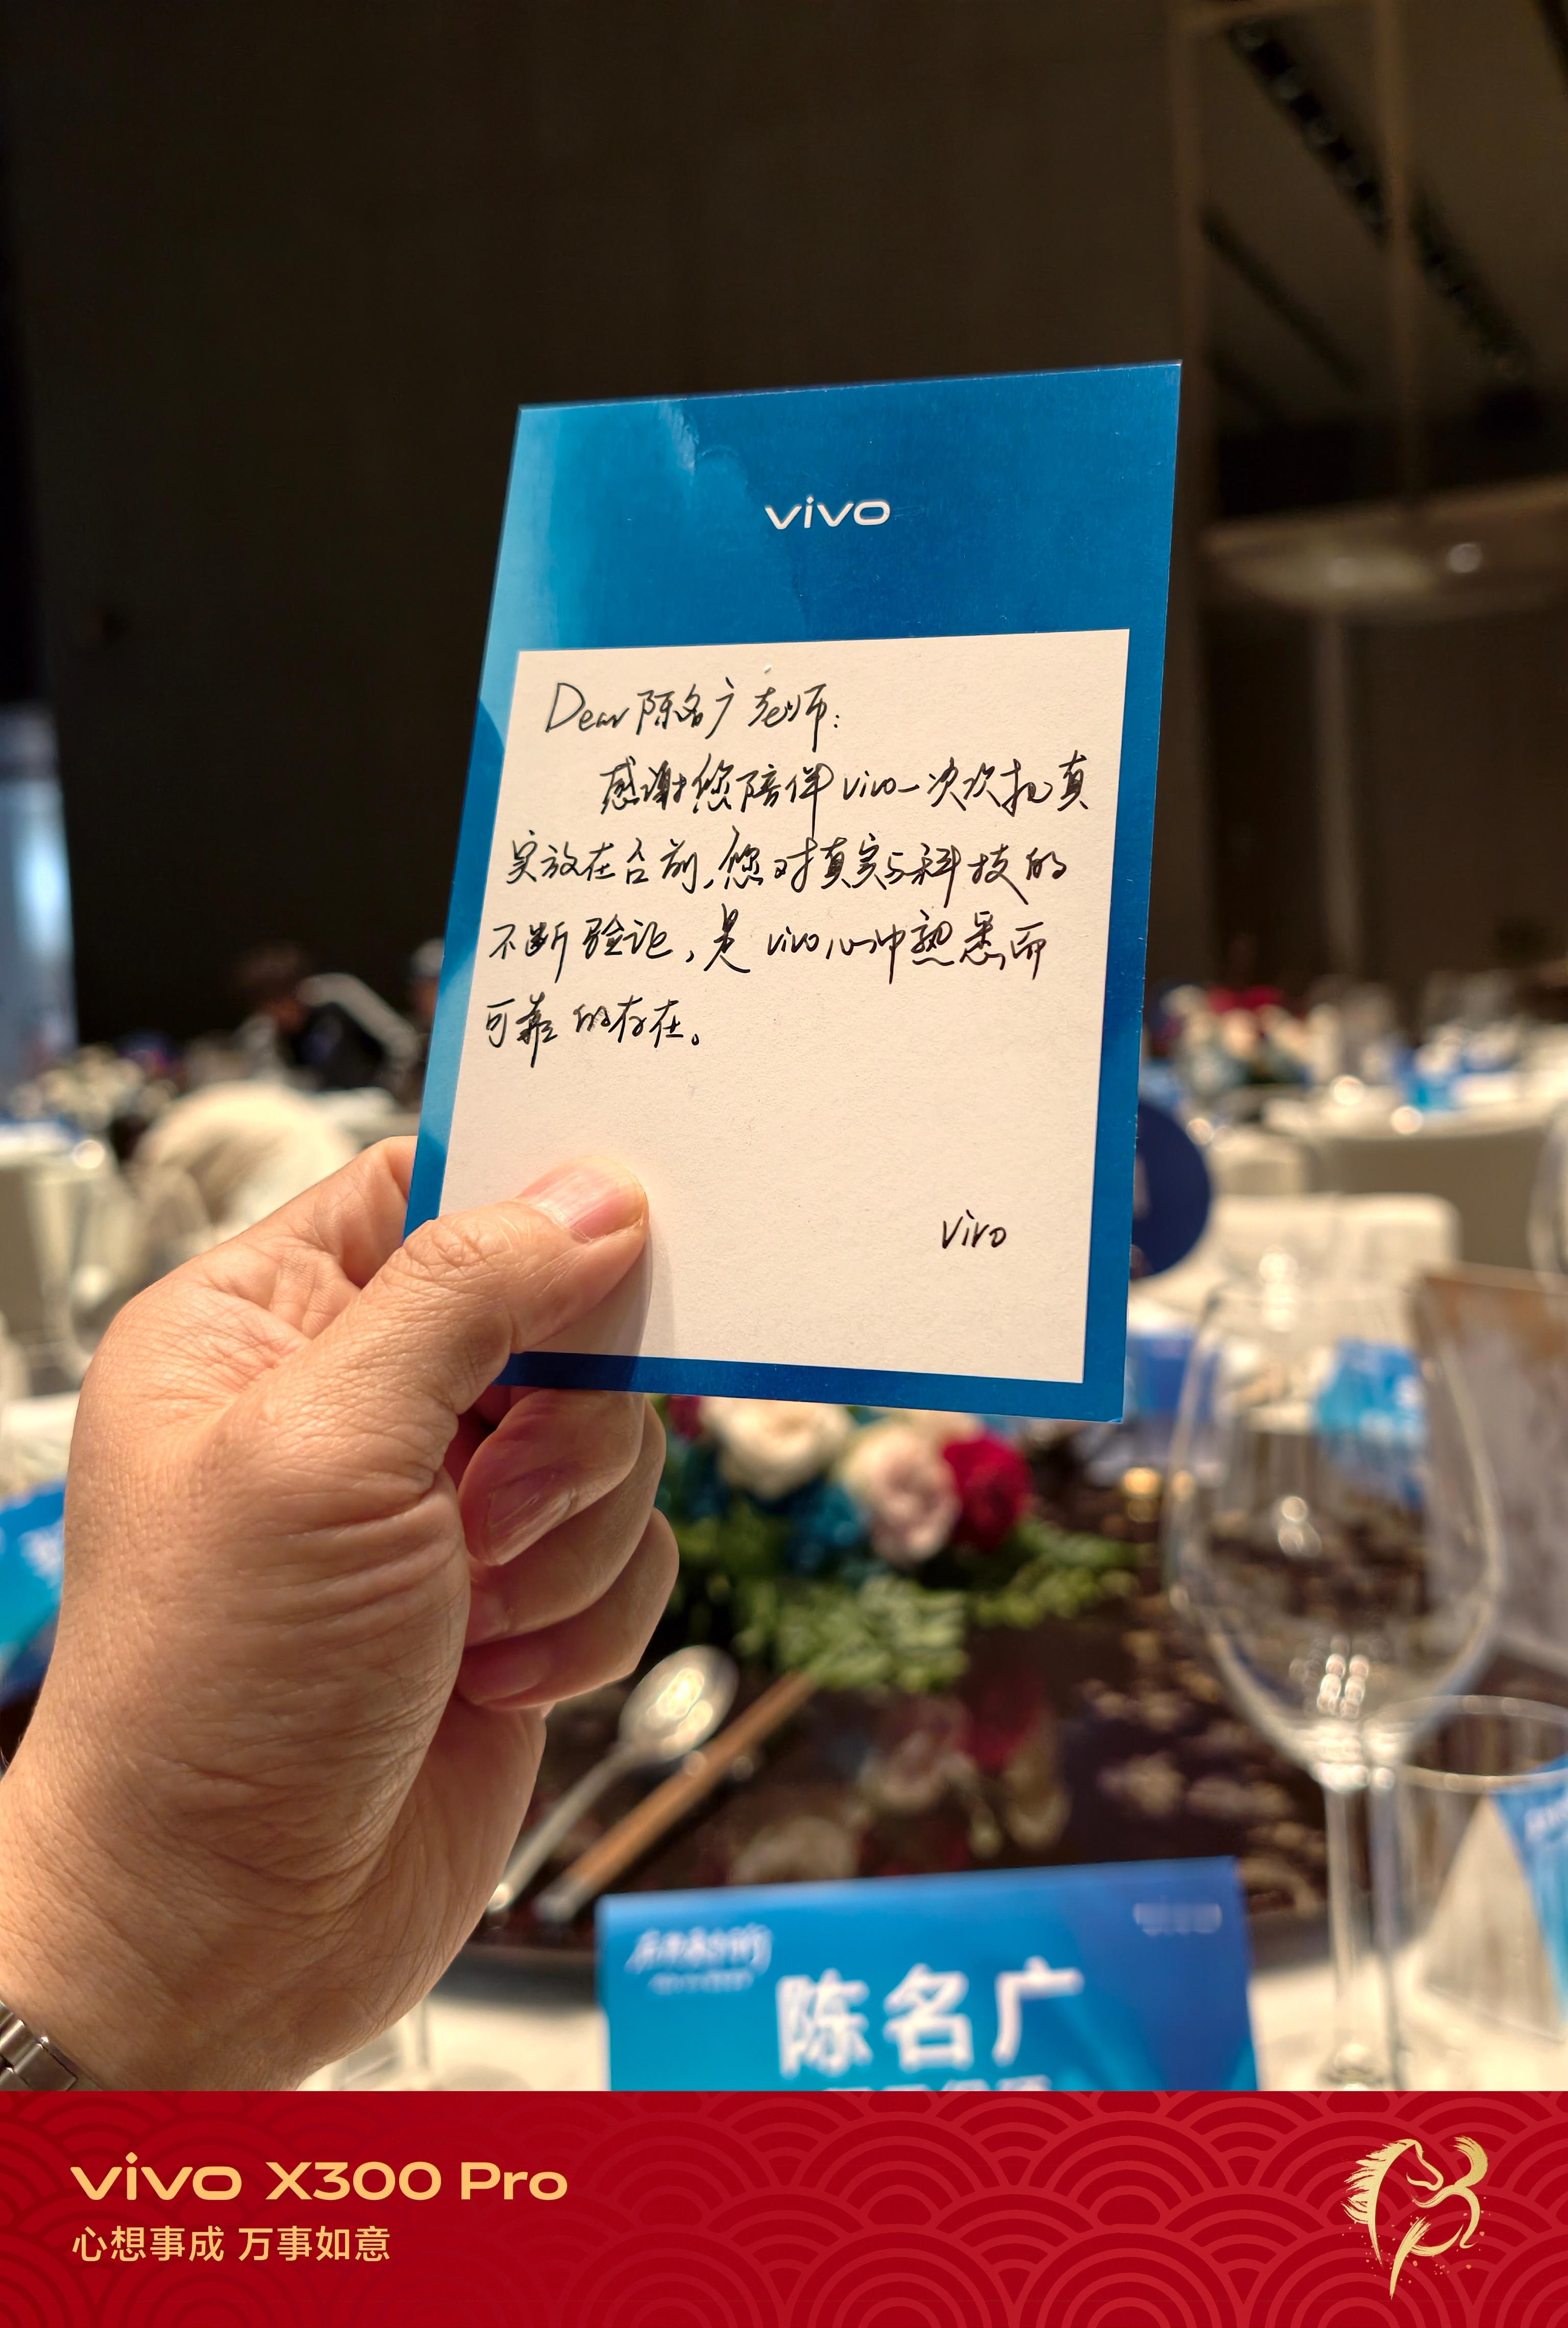 vivo
Dear 陈名广老师:
感谢您陪伴vivo一次次把真
实放在台前,您对真实与科技的
不断验论,是vivo心中熟悉而
可靠的存在。
vivo
vivo
陈名广
vivo X300 Pro
心想事成 万事如意